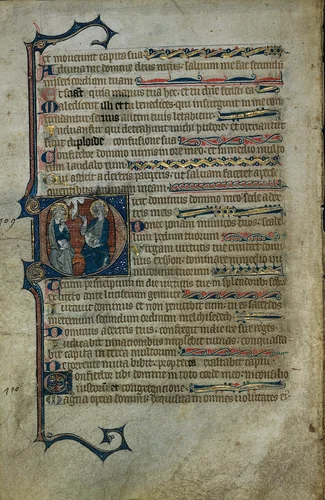 et mouerunt capita sua
Adiuua me domine deus meus : saluum me fac secundum
misericordiam tuam
Et sciant quia manus tua hec : et tu domine fecisti eam
Maledicent illi et tu benedices : qui insurgunt in me con
fundantur seruus autem tuus letabitur
Induantur qui detrahunt michi pudore : et operiantur
sicut diploide confusione sua
Confitebor domino nimis in ore meo : et in medio multo
rum laudabo eum
Qui astitit a dextris pauperis : ut saluam faceret a perse
quentibus animam meam
109
Dixit dominus domino meo : sede a dex
tris meis
Donec ponam inimicos tuos : scabel
lum pedum tuorum
Virgam uirtutis tue emittet domi
nus ex syon : dominare in medio ini
micorum tuorum
Tecum principium in die uirtutis tue in splendoribus sanctorum
ex utero ante luciferum genui te
Iurauit dominus et non penitebit eum : tu es sacerdos in
eternum secundum ordinem melchisedech
Dominus a dextris tuis : confregit in die ire sue reges
Iudicabit in nationibus implebit ruinas : conquassa
bit capita in terra multorum
De torrente in uia bibet : propterea exaltabit caput
110
Confitebor tibi domine in toto corde meo : in consilio
iustorum et congregatione
Magna opera domini : exquisita in omnes uoluntates ei